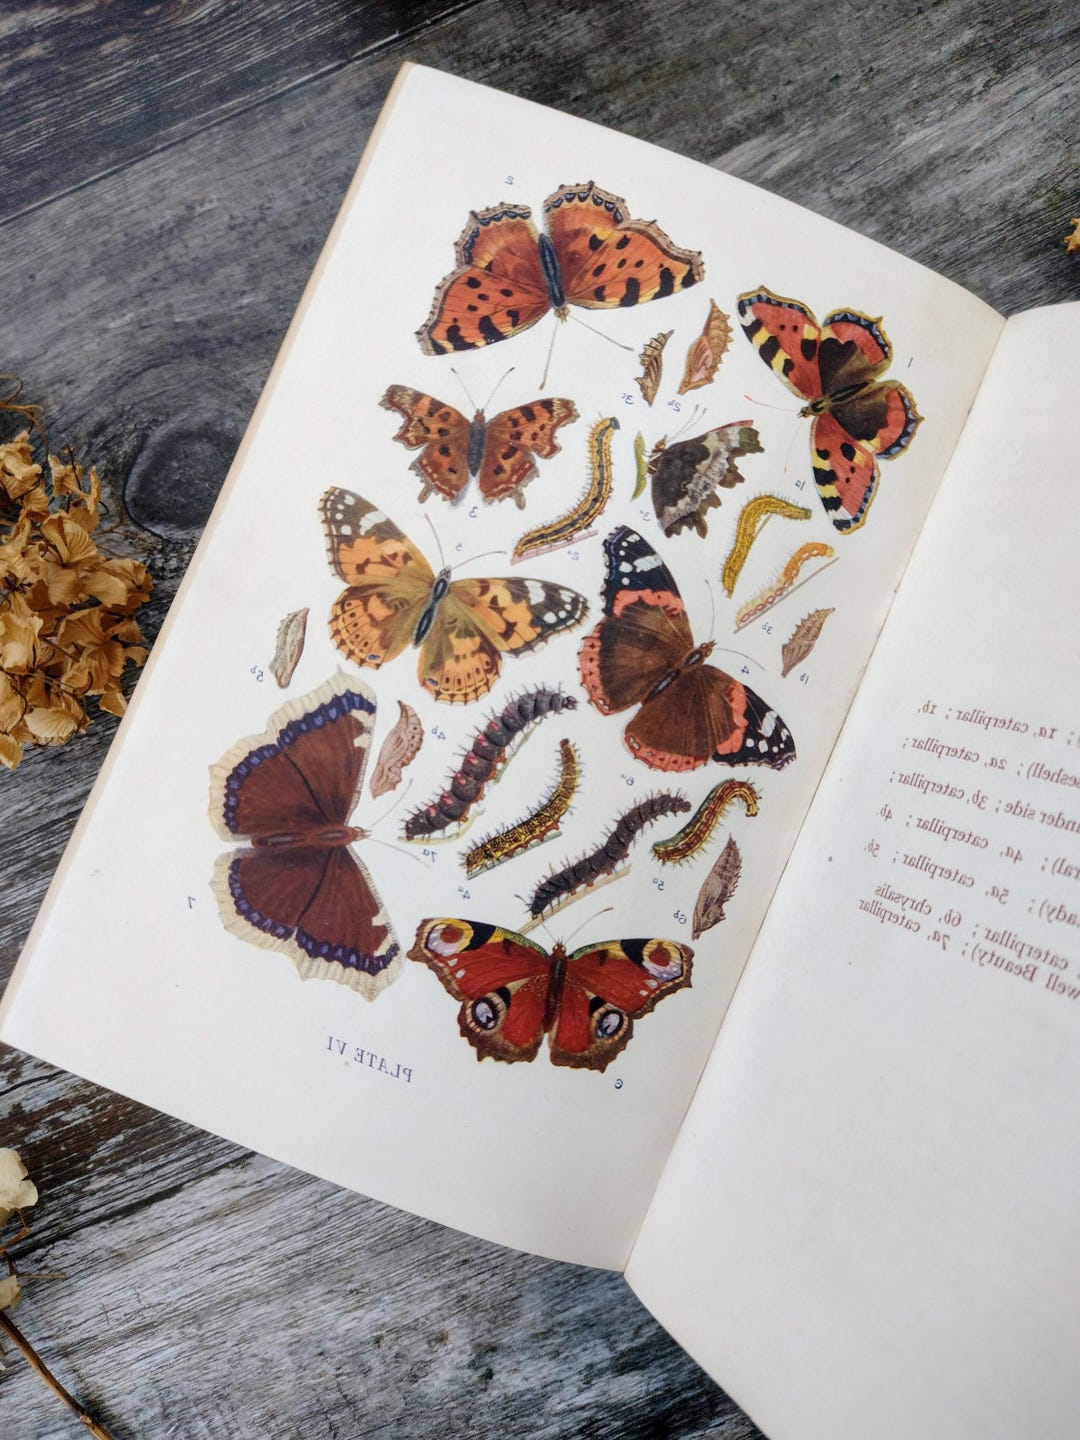 2
1
3c
2b
3
1a
3a
2a
5
3b
5b
4
1b
4b
6a
7a
4a
5a
6b
7
6
PLATE VI
; 1a, caterpillar ; 1b,
eshell) ; 2a, caterpillar ;
under side ; 3b, caterpillar ;
ral) ; 4a, caterpillar ; 4b,
Lady) ; 5a, caterpillar ; 5b,
caterpillar ; 6b, chrysalis
well Beauty) ; 7a, caterpillar